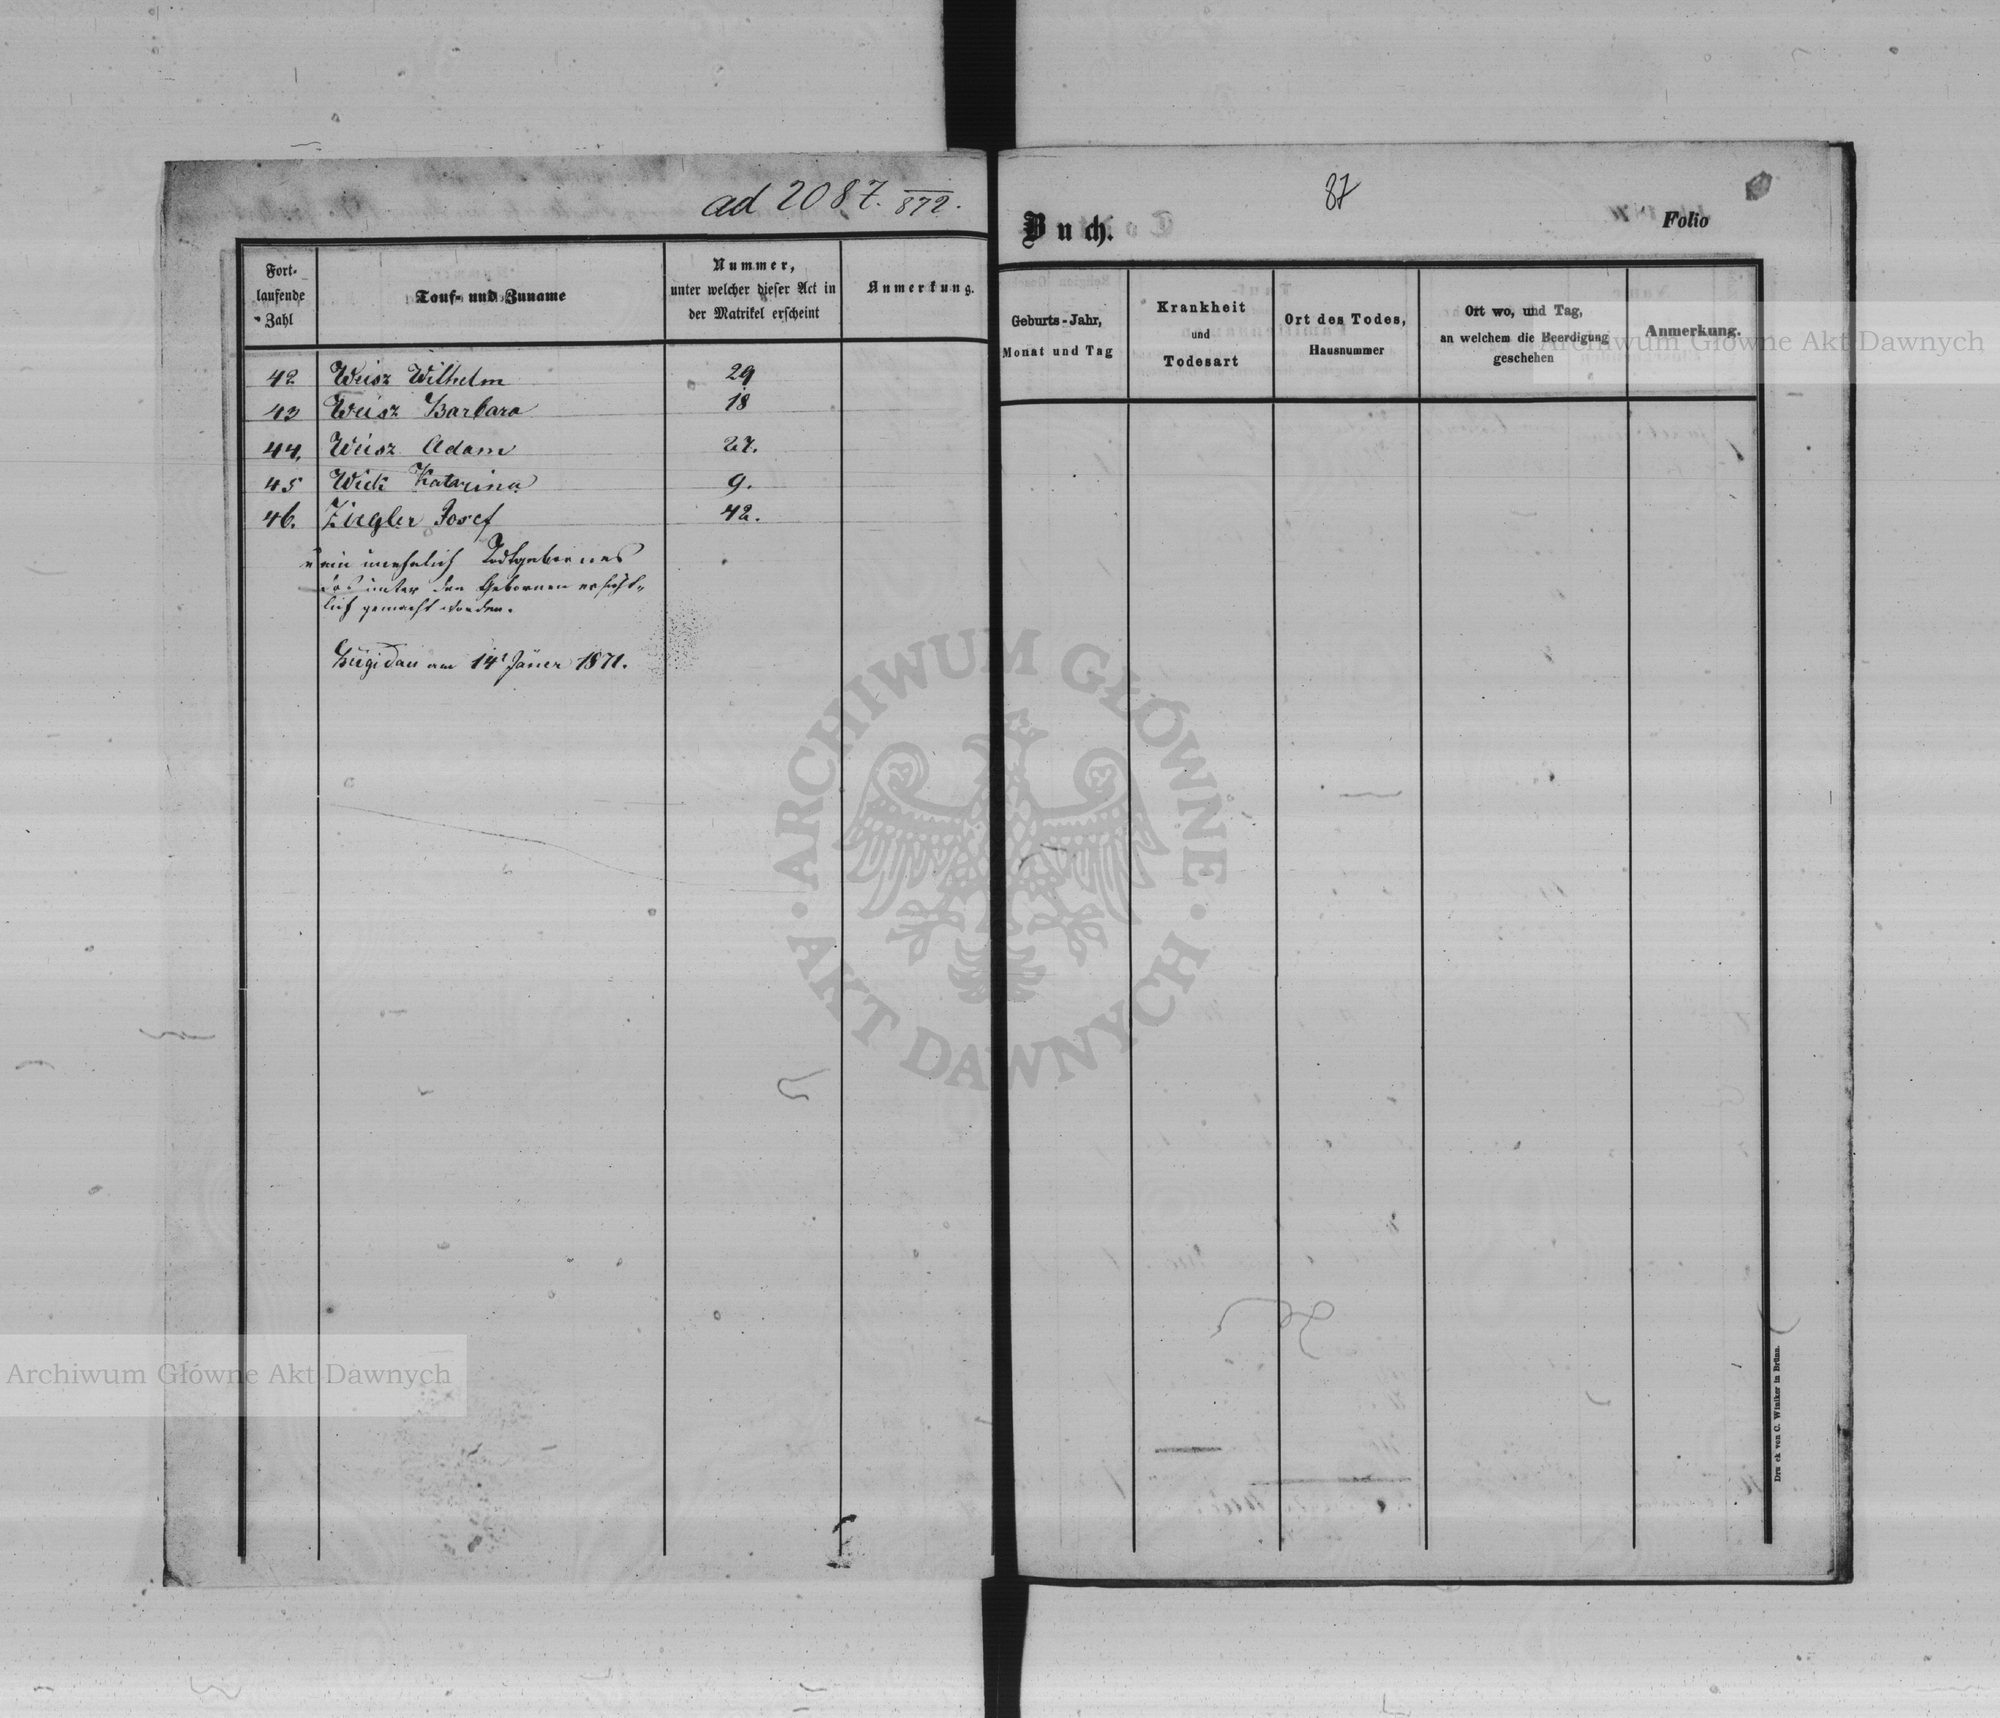 ad 2087. 872.
Fort-
laufende
Zahl
Tauf- und Zuname
Nummer,
unter welcher dieser Act in
der Matrikel erscheint
Anmerkung.
42 Weisz Wilhelm 29
43 Weisz Barbara 18
44, Weisz Adam 27.
45 Wick Katarina 9.
46. Ziegler Josef 42.
u ein unehelich Todtgebornes
das unter den Gebornen ersicht-
lich gemacht worden.
am 14t Jäner 1871.
87
Buch.
Folio
Geburts-Jahr,
Monat und Tag
Krankheit
und
Todesart
Ort des Todes,
Hausnummer
Ort wo, und Tag,
an welchem die Beerdigung
geschehen
Anmerkung.
Archiwum Główne Akt Dawnych
ARCHIWUM GŁÓWNE
· AKT DAWNYCH ·
Archiwum Główne Akt Dawnych
Druck von C. Winiker in Brünn.